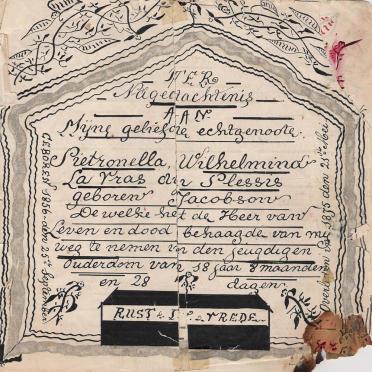 TER
Nagedachtenis
AAN
Mijns geliefde echtgenoote.
Pietronella Wilhelmina
La Gras du Plessis
geboren Jacobson
De welke het de Heer van
Leven en dood behaagde van mij
weg te nemen in den jeugdigen
Ouderdom van 18 jaar 8 maanden
en 28 dagen
RUST in VREDE
GEBOREN 1856 den 25ste September
Overleden 1875 den 21ste Mei